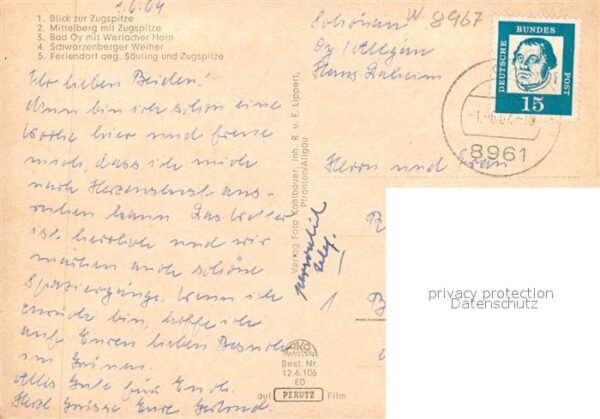 1.6.64
1. Blick zur Zugspitze
2. Mittelberg mit Zugspitze
3. Bad Oy mit Wertacher Horn
4. Schwarzenberger Weiher
5. Feriendorf geg. Säuling und Zugspitze
Ihr lieben Beiden!
Nun bin ich schon eine
Woche hier und freue
mich, dass ich mich
nach Herzenslust aus-
ruhen kann. Das Wetter
ist herrlich und wir
machen auch schöne
Spaziergänge. Wenn ich
zurück bin, hoffe ich
auf Euren lieben Besuch
im Grünen.
Alles Gute für Euch.
Herzl. Grüsse Eure Gertrud.
Verlag Foto Kohlbauer, Inh. R. u. E. Lippert,
Pfronten/Allgäu
Best. Nr.
12.6.106
ED
auf PERUTZ Film
W 8967
Schönau
Oy/Allgäu
Haus Daheim
DEUTSCHE BUNDES POST
15
8961
Herrn und Frau
1
privacy protection
Datenschutz